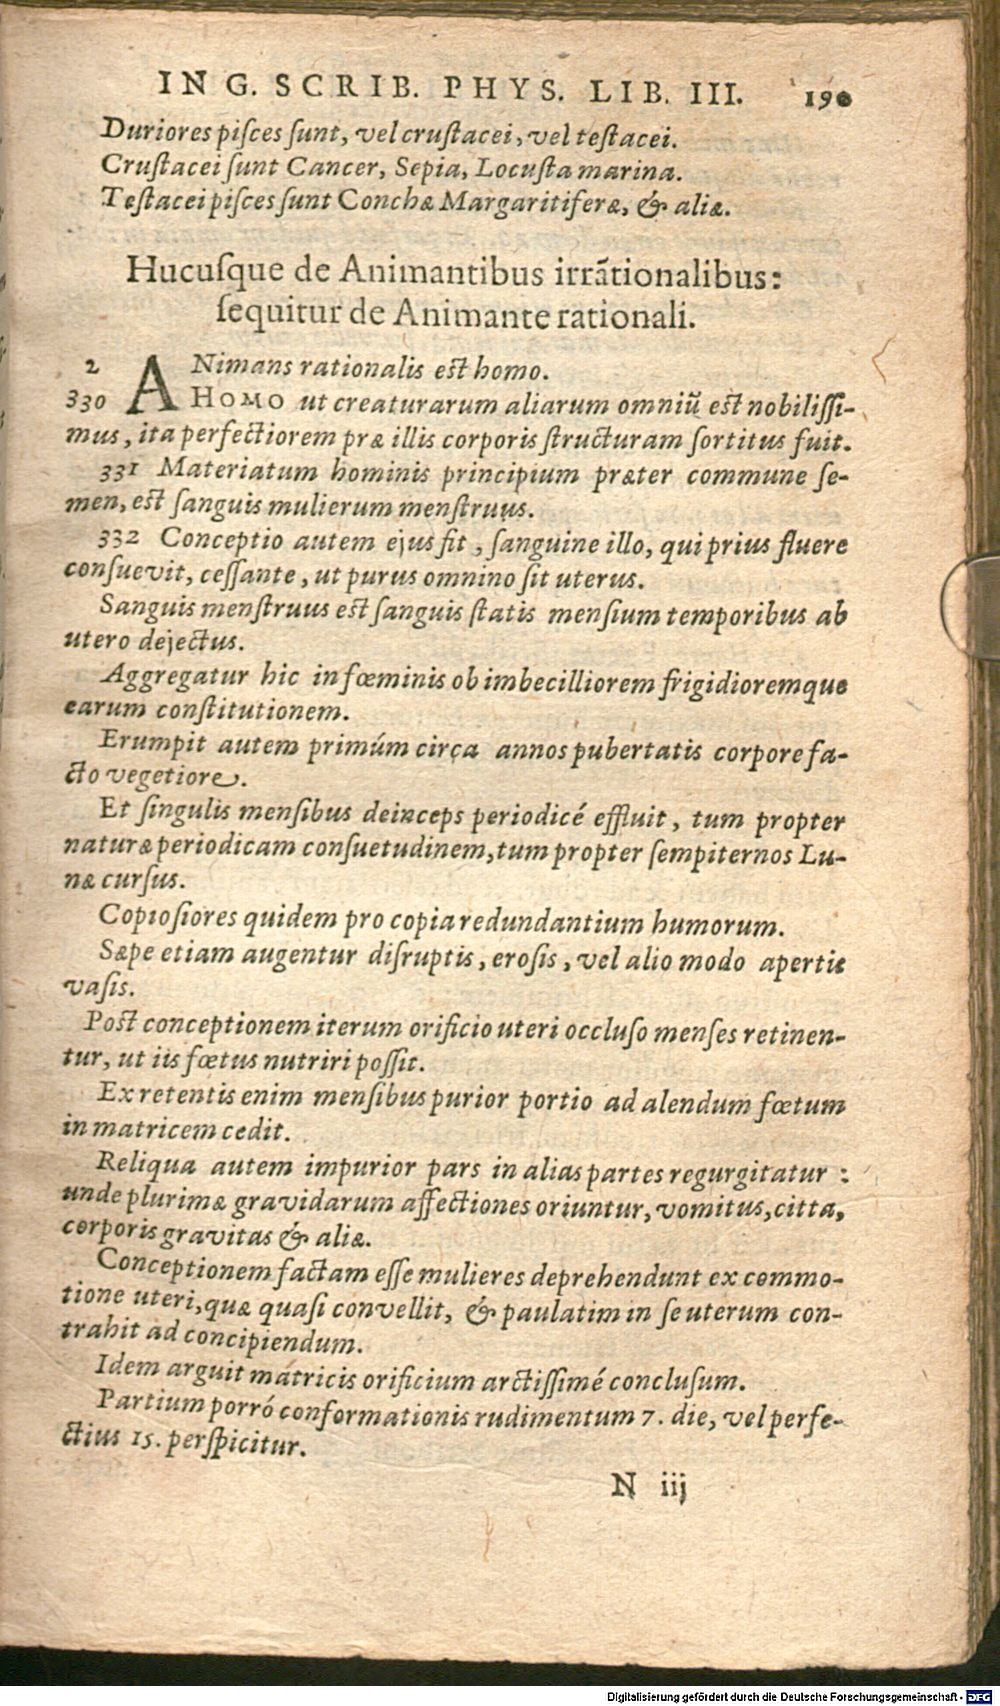 IN G. SCRIB. PHYS. LIB. III. 190
Duriores piſces ſunt, vel cruſtacei, vel teſtacei.
Cruſtacei ſunt Cancer, Sepia, Locuſta marina.
Teſtacei piſces ſunt Conchæ Margaritiferæ, & aliæ.
Hucuſque de Animantibus irrãtionalibus:
ſequitur de Animante rationali.
2 ANimans rationalis eſt homo.
330 HOMO ut creaturarum aliarum omniũ eſt nobiliſſi-
mus, ita perfectiorem præ illis corporis ſtructuram ſortitus fuit.
331 Materiatum hominis principium præter commune ſe-
men, eſt ſanguis mulierum menſtruus.
332 Conceptio autem ejus fit, ſanguine illo, qui prius fluere
conſuevit, ceſſante, ut purus omnino ſit uterus.
Sanguis menſtruus eſt ſanguis ſtatis menſium temporibus ab
utero dejectus.
Aggregatur hic in fœminis ob imbecilliorem frigidioremque
earum conſtitutionem.
Erumpit autem primúm circa annos pubertatis corpore fa-
cto vegetiore.
Et ſingulis menſibus deinceps periodicé effluit, tum propter
naturæ periodicam conſuetudinem, tum propter ſempiternos Lu-
næ curſus.
Copioſiores quidem pro copia redundantium humorum.
Sæpe etiam augentur diſruptis, eroſis, vel alio modo apertis
vaſis.
Poſt conceptionem iterum orificio uteri occluſo menſes retinen-
tur, ut iis fœtus nutriri poſſit.
Ex retentis enim menſibus purior portio ad alendum fœtum
in matricem cedit.
Reliqua autem impurior pars in alias partes regurgitatur:
unde plurimæ gravidarum affectiones oriuntur, vomitus, citta,
corporis gravitas & aliæ.
Conceptionem factam eſſe mulieres deprehendunt ex commo-
tione uteri, quæ quaſi convellit, & paulatim in ſe uterum con-
trahit ad concipiendum.
Idem arguit matricis orificium arctiſſimé concluſum.
Partium porró conformationis rudimentum 7. die, vel perfe-
ctius 15. perſpicitur.
N iij
Digitalisierung gefördert durch die Deutsche Forschungsgemeinschaft - DFG